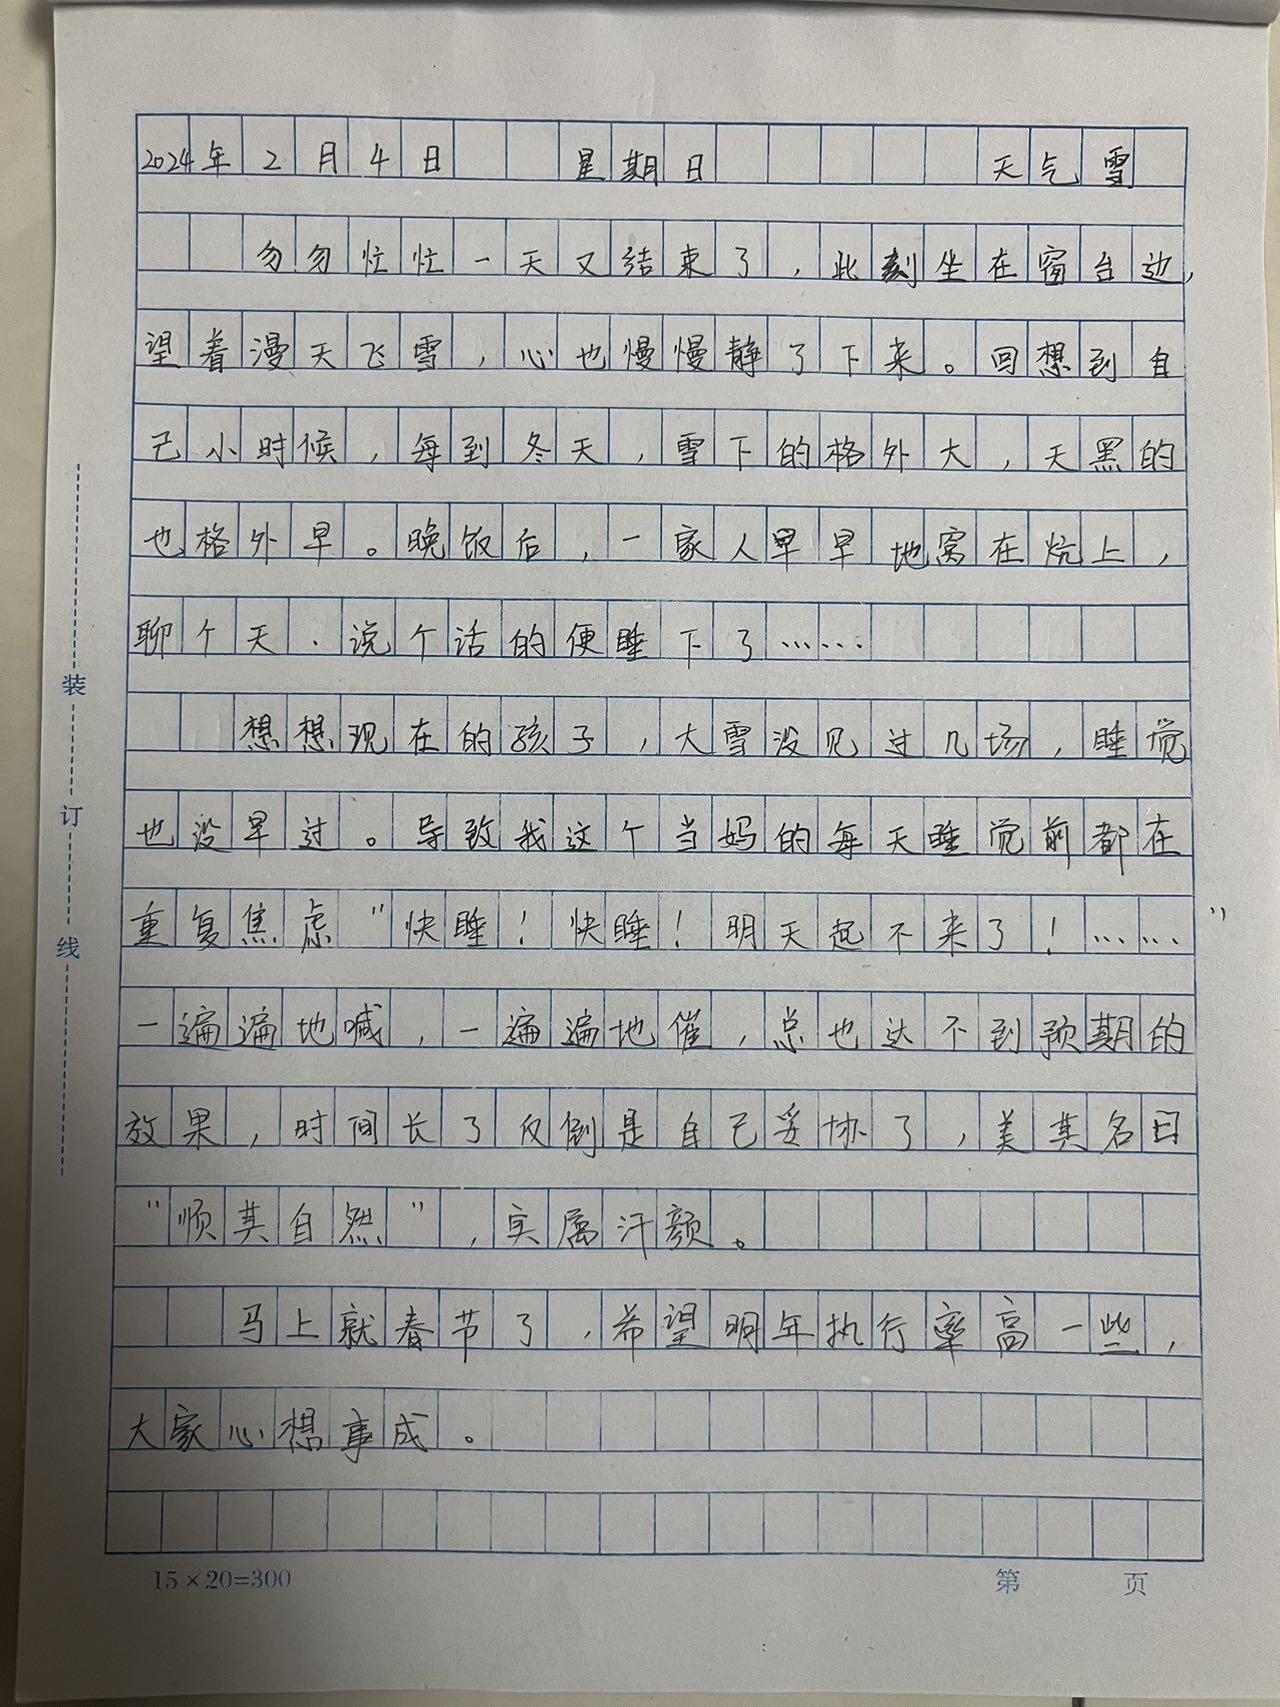 2024年2月4日 星期日 天气雪
勿勿忙忙一天又结束了，此刻坐在窗台边，
望着漫天飞雪，心也慢慢静了下来。回想到自
己小时候，每到冬天，雪下的格外大，天黑的
也格外早。晚饭后，一家人早早地窝在炕上，
聊个天．说个话的便睡下了……
想想现在的孩子，大雪没见过几场，睡觉
也没早过。导致我这个当妈的每天睡觉前都在
重复焦虑“快睡！快睡！明天起不来了！……”
一遍遍地喊，一遍遍地催，总也达不到预期的
效果，时间长了反倒是自己妥协了，美其名曰
“顺其自然”，实属汗颜。
马上就春节了，希望明年执行率高一些，
大家心想事成。
装
订
线
15×20=300 第 页